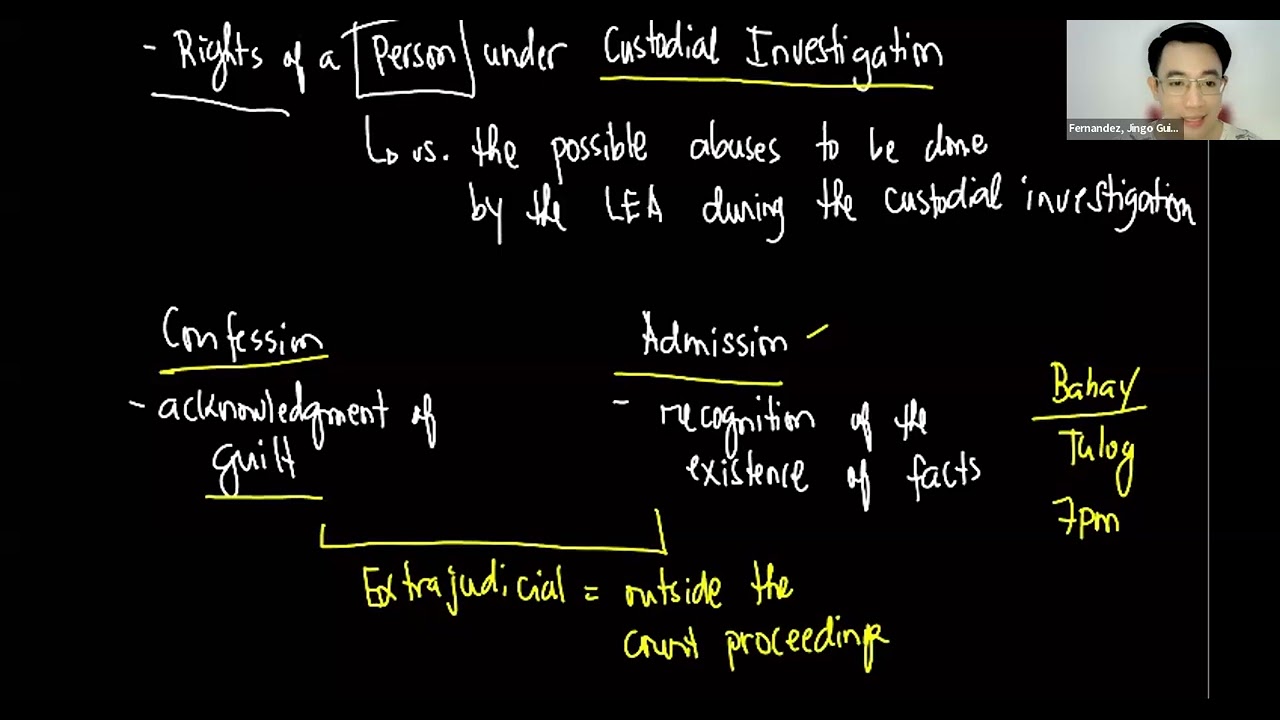 - Rights of a Person under Custodial Investigation
Fernandez, Jingo Gui...
↳ vs. the possible abuses to be done
by the LEA during the custodial investigation
Confession
Admission
- acknowledgment of
guilt
- recognition of the
existence of facts
Bahay
Tulog
7pm
Extrajudicial = outside the
court proceedings